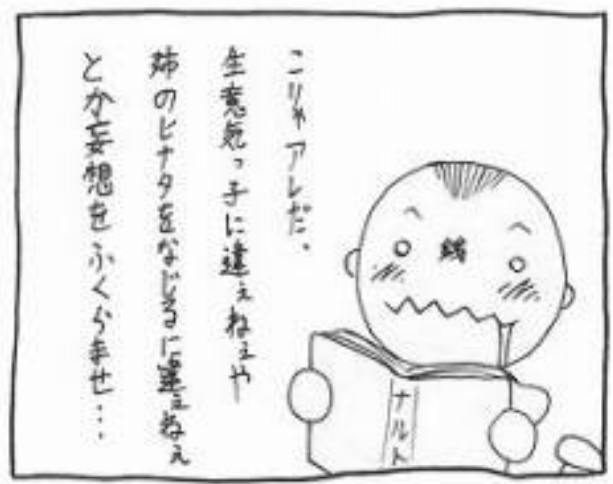 こりゃアレだ。
生意気っ子に違ぇねぇや
姉のヒナタをなじるに違ぇねぇ
とか妄想をふくらませ…
ナルト